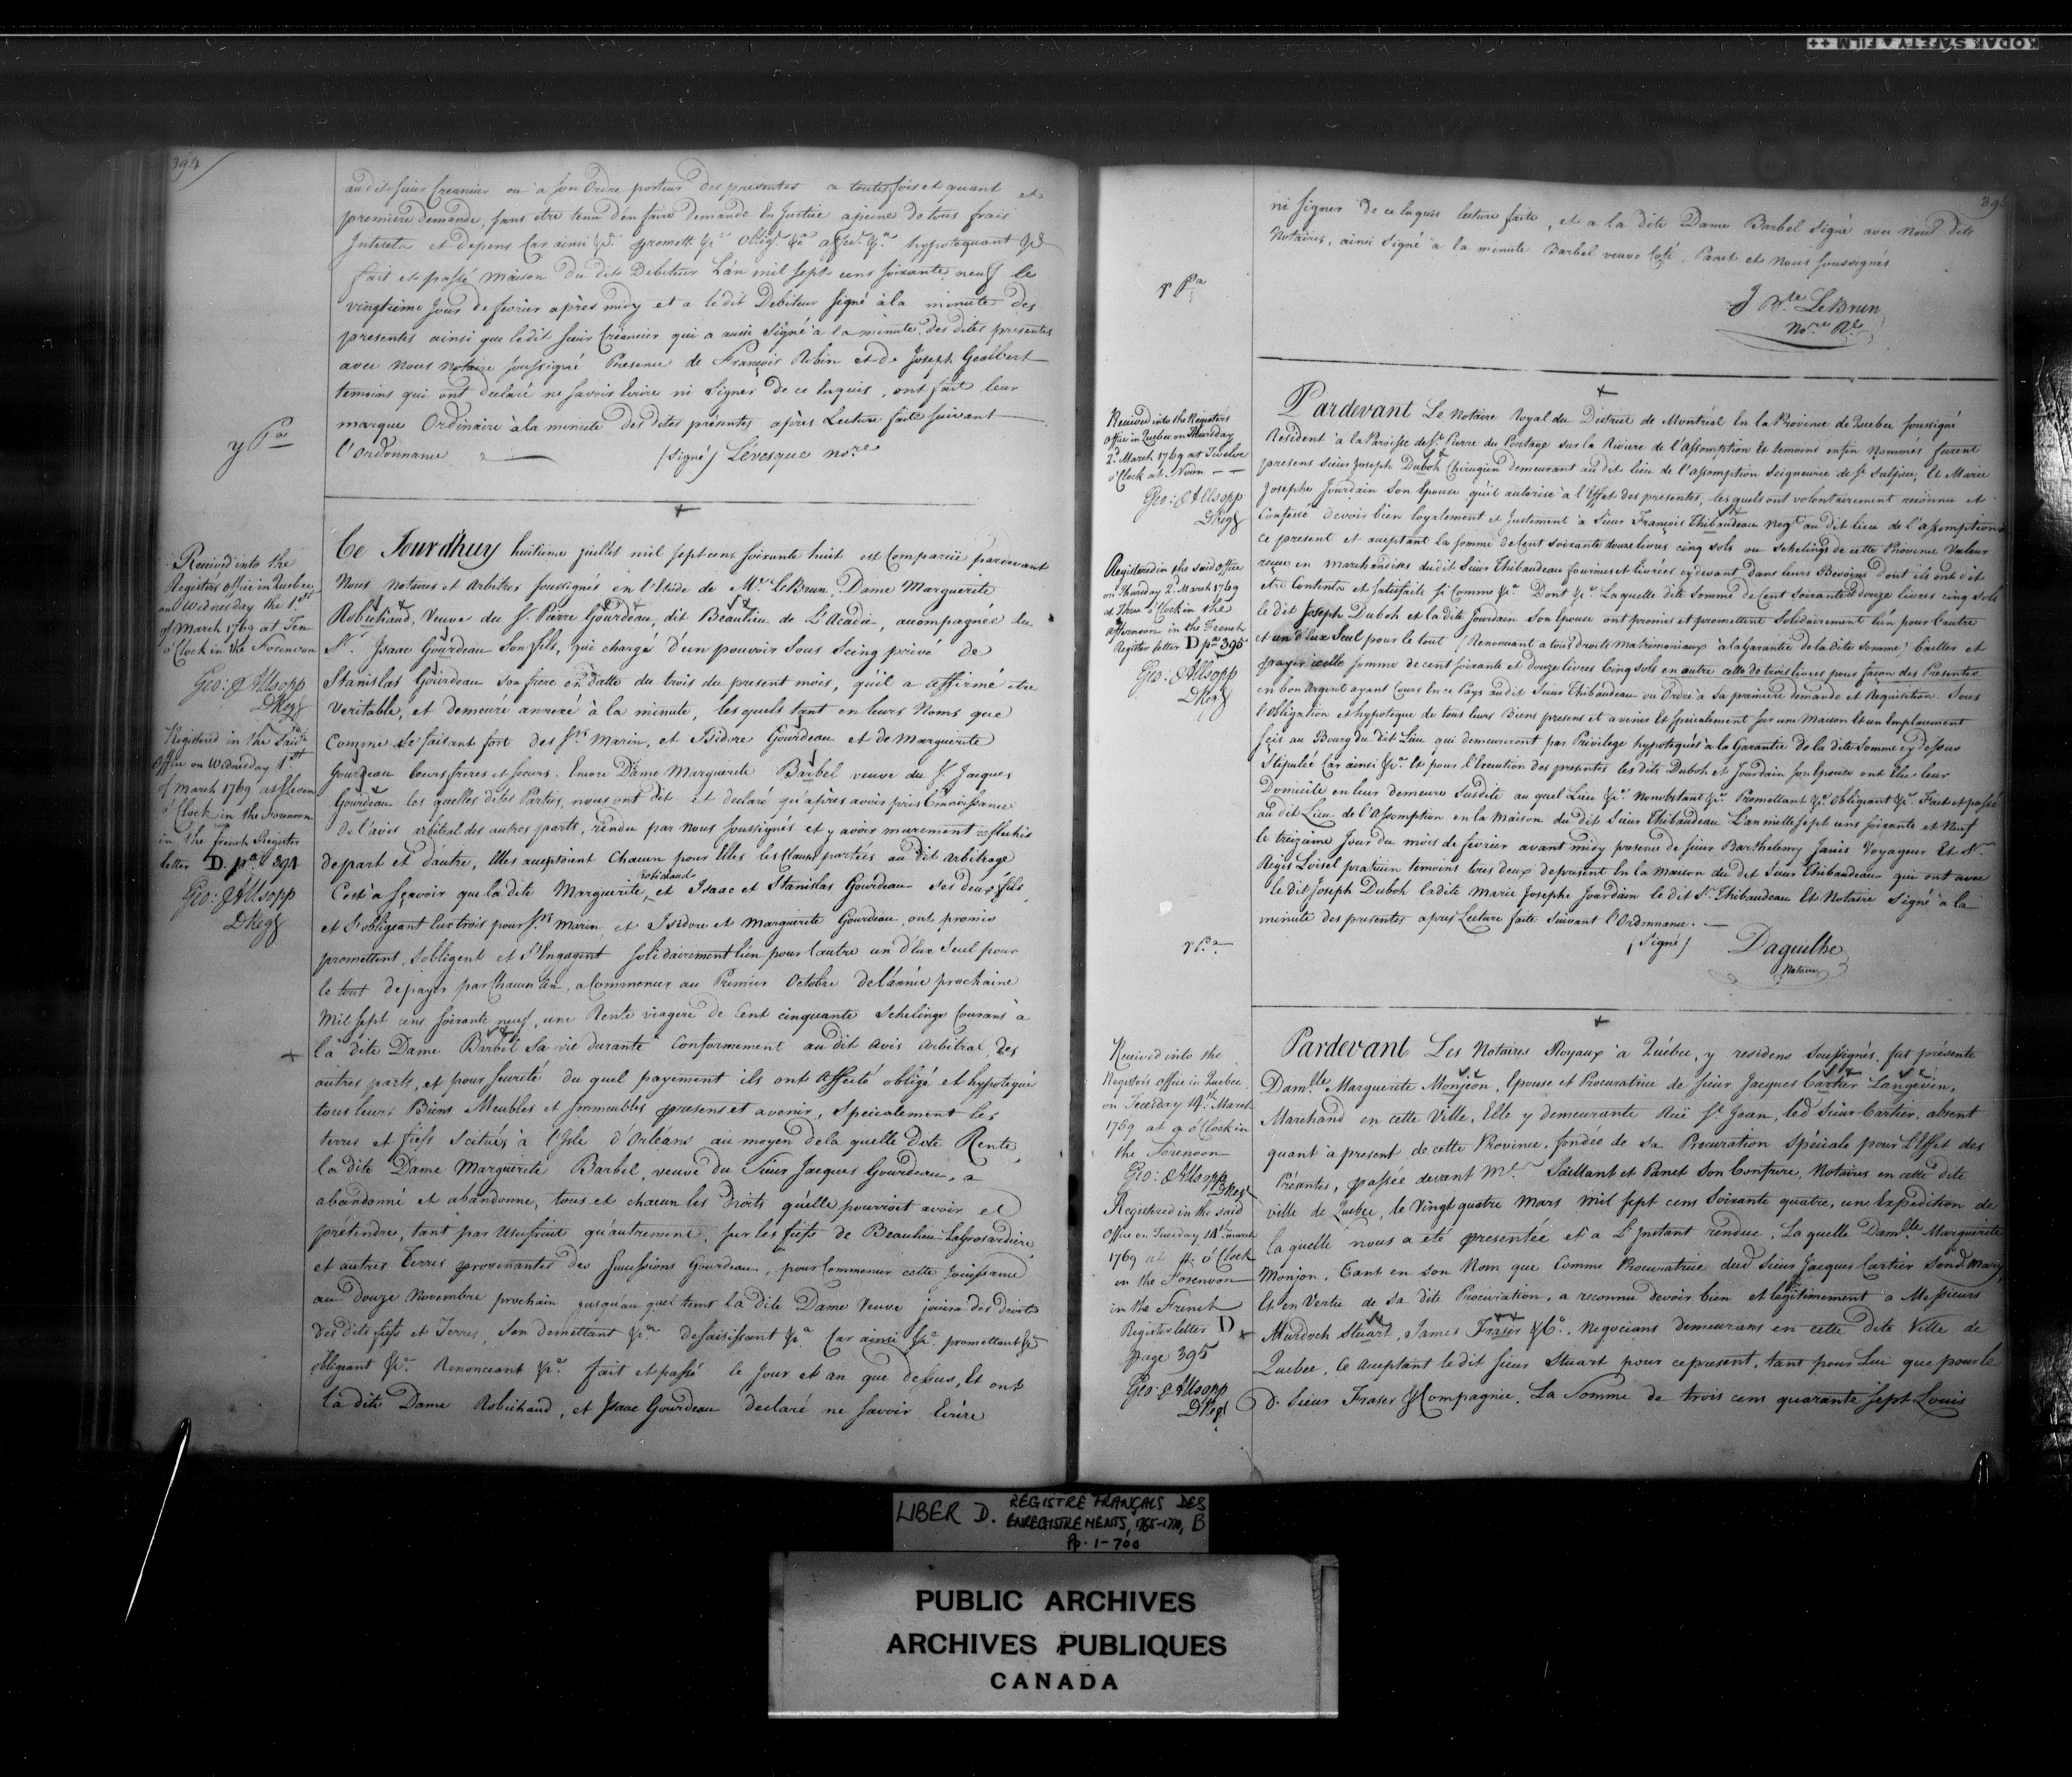 KODAK SAFETY FILM ++
394
au dit sieur Creancier ou a son Ordre porteur des presentes a toutes fois et quant et
premiere demande, sans etre tenu d'en faire demande En Justice apeine de tous frais
Interets et depens Car ainsi &ca. promett. &ca. Oblig. &ca. affec. &ca. hypotequant &ca
fait et passé maison du dit Debiteur L'an mil sept cens soixante neuf le
vingtieme Jour de fevrier après midy et a le dit Debiteur signé à la minute des
presentes ainsi que le dit sieur Créancier qui a aussi Signé a la minute des dites presentes
avec nous Notaire soussigné Presence de François Robin et de Joseph Gealbert
temoins qui ont declaré ne savoir Ecrire ni Signer de ce Enquis, ont fait leur
marque Ordinaire à la minute des dites présentes après Lecture faite suivant
l'Ordonnance (Signé) Lévesque nore
Received into the
Registers office in Quebec
on Wednesday the 1st.
of March 1769 at Ten
o'Clock in the Forenoon
Geo: Allsopp
DRegr
Registered in the Said
Office on Wednesday 1st
of March 1769 at Eleven
o'Clock in the Forenoon
in the french Register
letter D. pa. 394
Geo: Allsopp
DRegr
Ce Jourdhuy huitieme juillet mil sept cens soixante huit est Comparüe pardevant
Nous Notaires et Arbitres soussignés en l'Etude de Mr. LeBrun, Dame Marguerite
Robichaud, Veuve du Sr. Pierre Gourdeau, dit Beaulieu de L'Acadie, accompagnée du
Sr. Isaac Gourdeau Son fils, qui chargé d'un pouvoir Sous Seing privé de
Stanislas Gourdeau Son frere en datte du trois du present mois, qu'il a affirmé etre
Veritable, et demeuré annexé à la minute, lesquels tant en leurs Noms que
Comme se faisant fort des Srs Marin, et Isidore Gourdeau et de Marguerite
Gourdeau leurs freres et soeurs. Encore Dame Marguerite Barbel veuve du Sr. Jacques
Gourdeau les quelles dites Parties, nous ont dit et declaré qu'après avoir pris Connoissance
de l'avis arbitral des autres parts, rendu par nous soussignés et y avoir murement reflechis
de part et d'autre, Elles acceptoient Chacun pour Elles les Clauses portées au dit arbitrage
Robichaud
C'est à sçavoir que la dite Marguerite, et Isaac et Stanislas Gourdeau Ses deux fils,
et S'obligeant Eux trois pour Srs Marin, et Isidore et Marguerite Gourdeau, ont promis
promettent, s'obligent et S'Engagent solidairement l'un pour l'autre un d'Eux Seul pour
le tout de payer par Chacun an, a Commencer au Premier Octobre de l'année prochaine
Mil sept cens soixante neuf, une Rente viagere de Cent cinquante Schelings Courans à
la dite Dame Barbel Sa vie durante Conformement au dit avis Arbitral, des
autres parts, et pour seureté du quel payement ils ont Affecté obligé et hypotequé
tous leurs Biens Meubles et Immeubles presens et avenir, Specialement les
terres et fiefs Scitués à l'Isle d'Orléans au moyen de la quelle dite Rente,
la dite Dame Marguerite Barbel, veuve du Sieur Jacques Gourdeau, a
abandonné et abandonne, tous et chacun les Droits qu'elle pourroit avoir et
prétendre, tant par Usufruit qu'autrement, sur les fiefs de Beaulieu LaGrosardiere
et autres Terres provenantes des Successions Gourdeau, pour Commencer cette Jouissance
au douze Novembre prochain jusqu'au quel tems la dite Dame Veuve jouira des droits
des dits fiefs et Terres, Son demettant &ca. desaisissant &ca Car ainsi &ca. promettant &ca
obligeant &ca. Renonceant &ca. fait et passé le Jour et an que dessus, Et ont
la dite Dame Robichaud, et Isaac Gourdeau declaré ne savoir Ecrire
39
ni signer de ce Enquis lecture faite, et a la dite Dame Barbel Signé avec Nous dits
Notaires, ainsi Signé à la minute Barbel veuve Coté, Panet et Nous soussignés
J Bte. LeBrun
Nore Re
Received into the Registers
office in Quebec on Thursday
2d. March 1769 at Twelve
o'Clock at Noon
Geo: Allsopp
DRegr
Registered in the Said office
on Thursday 2d. March 1769
at Three o'Clock in the
Afternoon in the French
Register letter D pa. 395
Geo: Allsopp
DRegr
Pardevant Le Notaire Royal du District de Montréal En la Province de Quebec soussigné
Résident à la Paroisse de St. Pierre du Portage sur la Riviere de l'Assomption Et temoins enfin Nommés furent
presens sieur Joseph Duboh Chirugien demeurant au dit lieu de l'assomption Seigneurie de St. Sulpice, Et Marie
Josephe Jourdain Son Epouse qu'il autorise à l'Effet des presentes, lesquels ont volontairement reconnu et
Confessé devoir bien loyalement et Justement à Sieur François Thibaudeau Negt au dit lieu de l'assomption
ce present et acceptant la somme de Cent soixante douze livres cinq sols ou Schelings de cette Province Valeur
recue en marchandises du dit Sieur Thibaudeau fournies et livrées cy devant dans leurs Besoins dont ils ont dit
etre Contents et Satisfaits si Comme &ca. Dont &ca. Laquelle dite Somme de Cent Soixante et douze livres cinq Sols
le dit Joseph Duboh et la dite Jourdain Son Epouse ont promis et promettent Solidairement l'un pour l'autre
et un d'Eux Seul pour le tout (Renoncant a tous droits Matrimoniaux à la Garantie de la dite Somme) bailler et
payer icelle somme de cent soixante et douze livres Cinq Sols en outre celle de trois livres pour façon des Presentes
en bon Argent ayant Cours En ce Pays audit Sieur Thibaudeau ou Ordre a Sa premiere demande et Requisition. Sous
l'obligation et hypoteque de tous leurs Biens presens et avenir Et specialement sur une Maison Et un Emplacement
scis au Bourg du dit Lieu qui demeureront par Privilege hypotequés à la Garantie de la dite Somme cy dessus
Stipulée Car ainsi &ca. Et pour l'Execution des presentes les dits Duboh et Jourdain son Epouse ont Elu leur
Domicile en leur demeure Susdite au quel Lieu &ca. Nonobstant &ca. Promettant &ca. Obligeant &ca. Fait et passé
au dit Lieu de l'Assomption en la Maison du dit Sieur Thibaudeau L'an mille sept cens soixante et Neuf
le treizieme Jour du mois de fevrier avant midy presence de sieur Barthelemy Janis Voyageur Et Sr
Regis Loisel praticien temoins tous deux de present En la Maison du dit Sieur Thibaudeau qui ont avec
le dit Joseph Duboh la dite Marie Josephe Jourdain le dit Sr. Thibaudeau Et Notaire Signé à la
minute des presentes apres Lecture faite Suivant l'Ordonnance.
(Signé) Daguilhe
Notaire
Received into the
Registers office in Quebec
on Tuesday 14th. March
1769 at 9 o'Clock in
the Forenoon
Geo: Allsopp
DRegr
Registered in the Said
Office on Tuesday 14th. March
1769 at 11. o'Clock
in the Forenoon
in the French
Register letter D
Page 395
Geo: Allsopp
DRegr
Pardevant Les Notaires Royaux à Québec, y residens Soussignés, fut présente
Damlle Marguerite Monjeon, Epouse et Procuratrice de sieur Jacques Cartier Langevin,
Marchand en cette Ville, Elle y demeurante Rue St. Jean, led. Sieur Cartier, absent
quant à present de cette Province, fondée de sa Procuration spéciale pour L'Effet des
Présentes, passée devant Mes. Saillant et Panet Son Confrere, Notaires en cette dite
ville de Quebec, le Vingt quatre Mars Mil sept cens Soixante quatre, un Expedition de
la quelle nous a été presentée et a L'Instant rendue. La quelle Damlle. Marguerite
Monjon. Tant en son Nom que Comme Procuratrice dud. Sieur Jacques Cartier Sond. Mary
Et en Vertu de Sa dite Procuration, a reconnu devoir bien et légitimement a Messieurs
Murdoch Stuart, James Fraser & Co. Negocians demeurans en cette dite Ville de
Quebec, Ce acceptant le dit sieur Stuart pour ce present, tant pour Lui que pour le
d. Sieur Fraser & Compagnie. La Somme de trois cens quarante Sept Louis
LIBER D. REGISTRE FRANÇAIS DES
ENREGISTREMENTS, 1765-1770, B
Pp. 1-700
PUBLIC ARCHIVES
ARCHIVES PUBLIQUES
CANADA